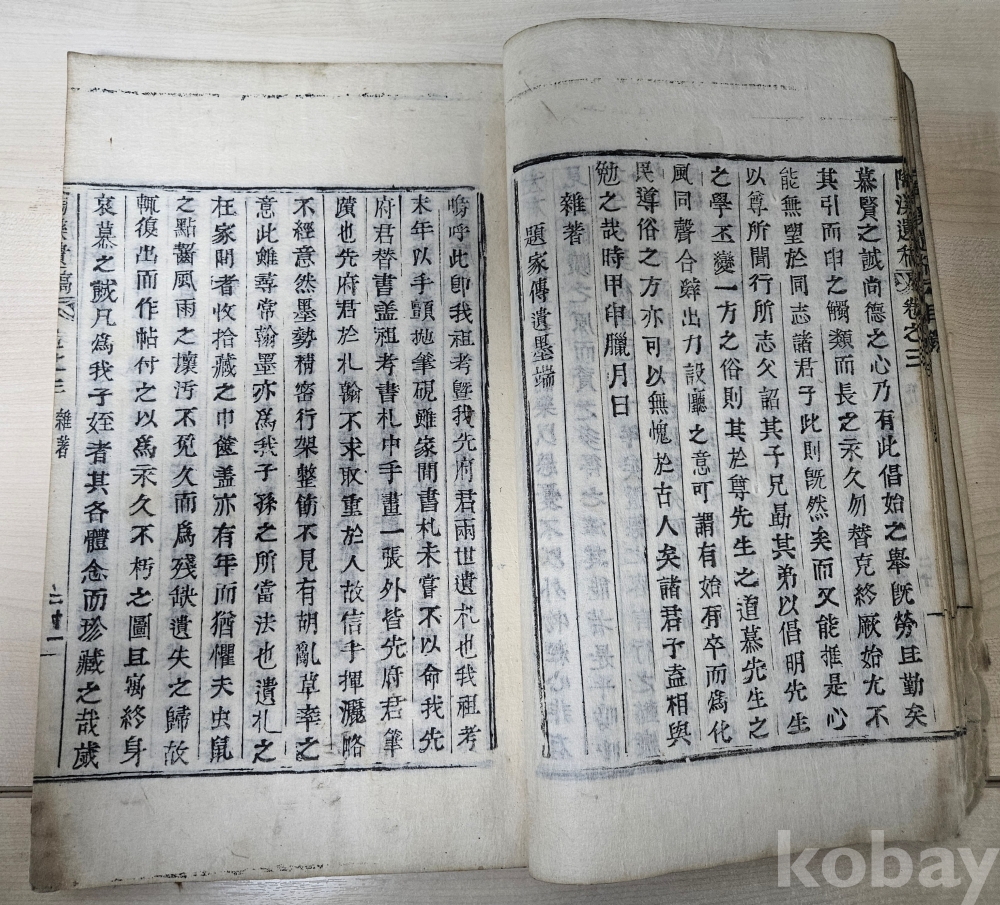 溪遺稿
卷之三
慕賢之誠尚德之心乃有此倡始之舉旣勞且勤矣
其引而印之觸類而長之永久勿替克終厥始尤不
能無望於同志諸君子此則旣然矣而又能推是心
以尊所聞行所志父詔其子兄勗其弟以倡明先生
之學丕變一方之俗則其於尊先生之道慕先生之
風同聲合辭出力設廳之意可謂有始有卒而爲化
民導俗之方亦可以無愧於古人矣諸君子盍相與
勉之哉時甲申臘月日
雜著
題家傳遺墨端
嗚呼此卽我祖考曁我先府君兩世遺札也我祖考
末年以手顫抛筆硯雖家間書札未嘗不以命我先
府君替書盖祖考書札中手畫一張外皆先府君筆
蹟也先府君於札翰不求取重於人故信手揮灑略
不經意然墨勢精密行架整飭不見有胡亂草率之
意此雖尋常翰墨亦爲我子孫之所當法也遺札之
在家間者收拾藏之巾篋盖亦有年而猶懼夫虫鼠
之點齧風雨之壞汚不免久而爲殘缺遺失之歸故
輒復出而作帖付之以爲永久不朽之圖且寓終身
哀慕之誠凡爲我子姪者其各體念而珍藏之哉歲
遺稿
卷之三
雜著
kobay